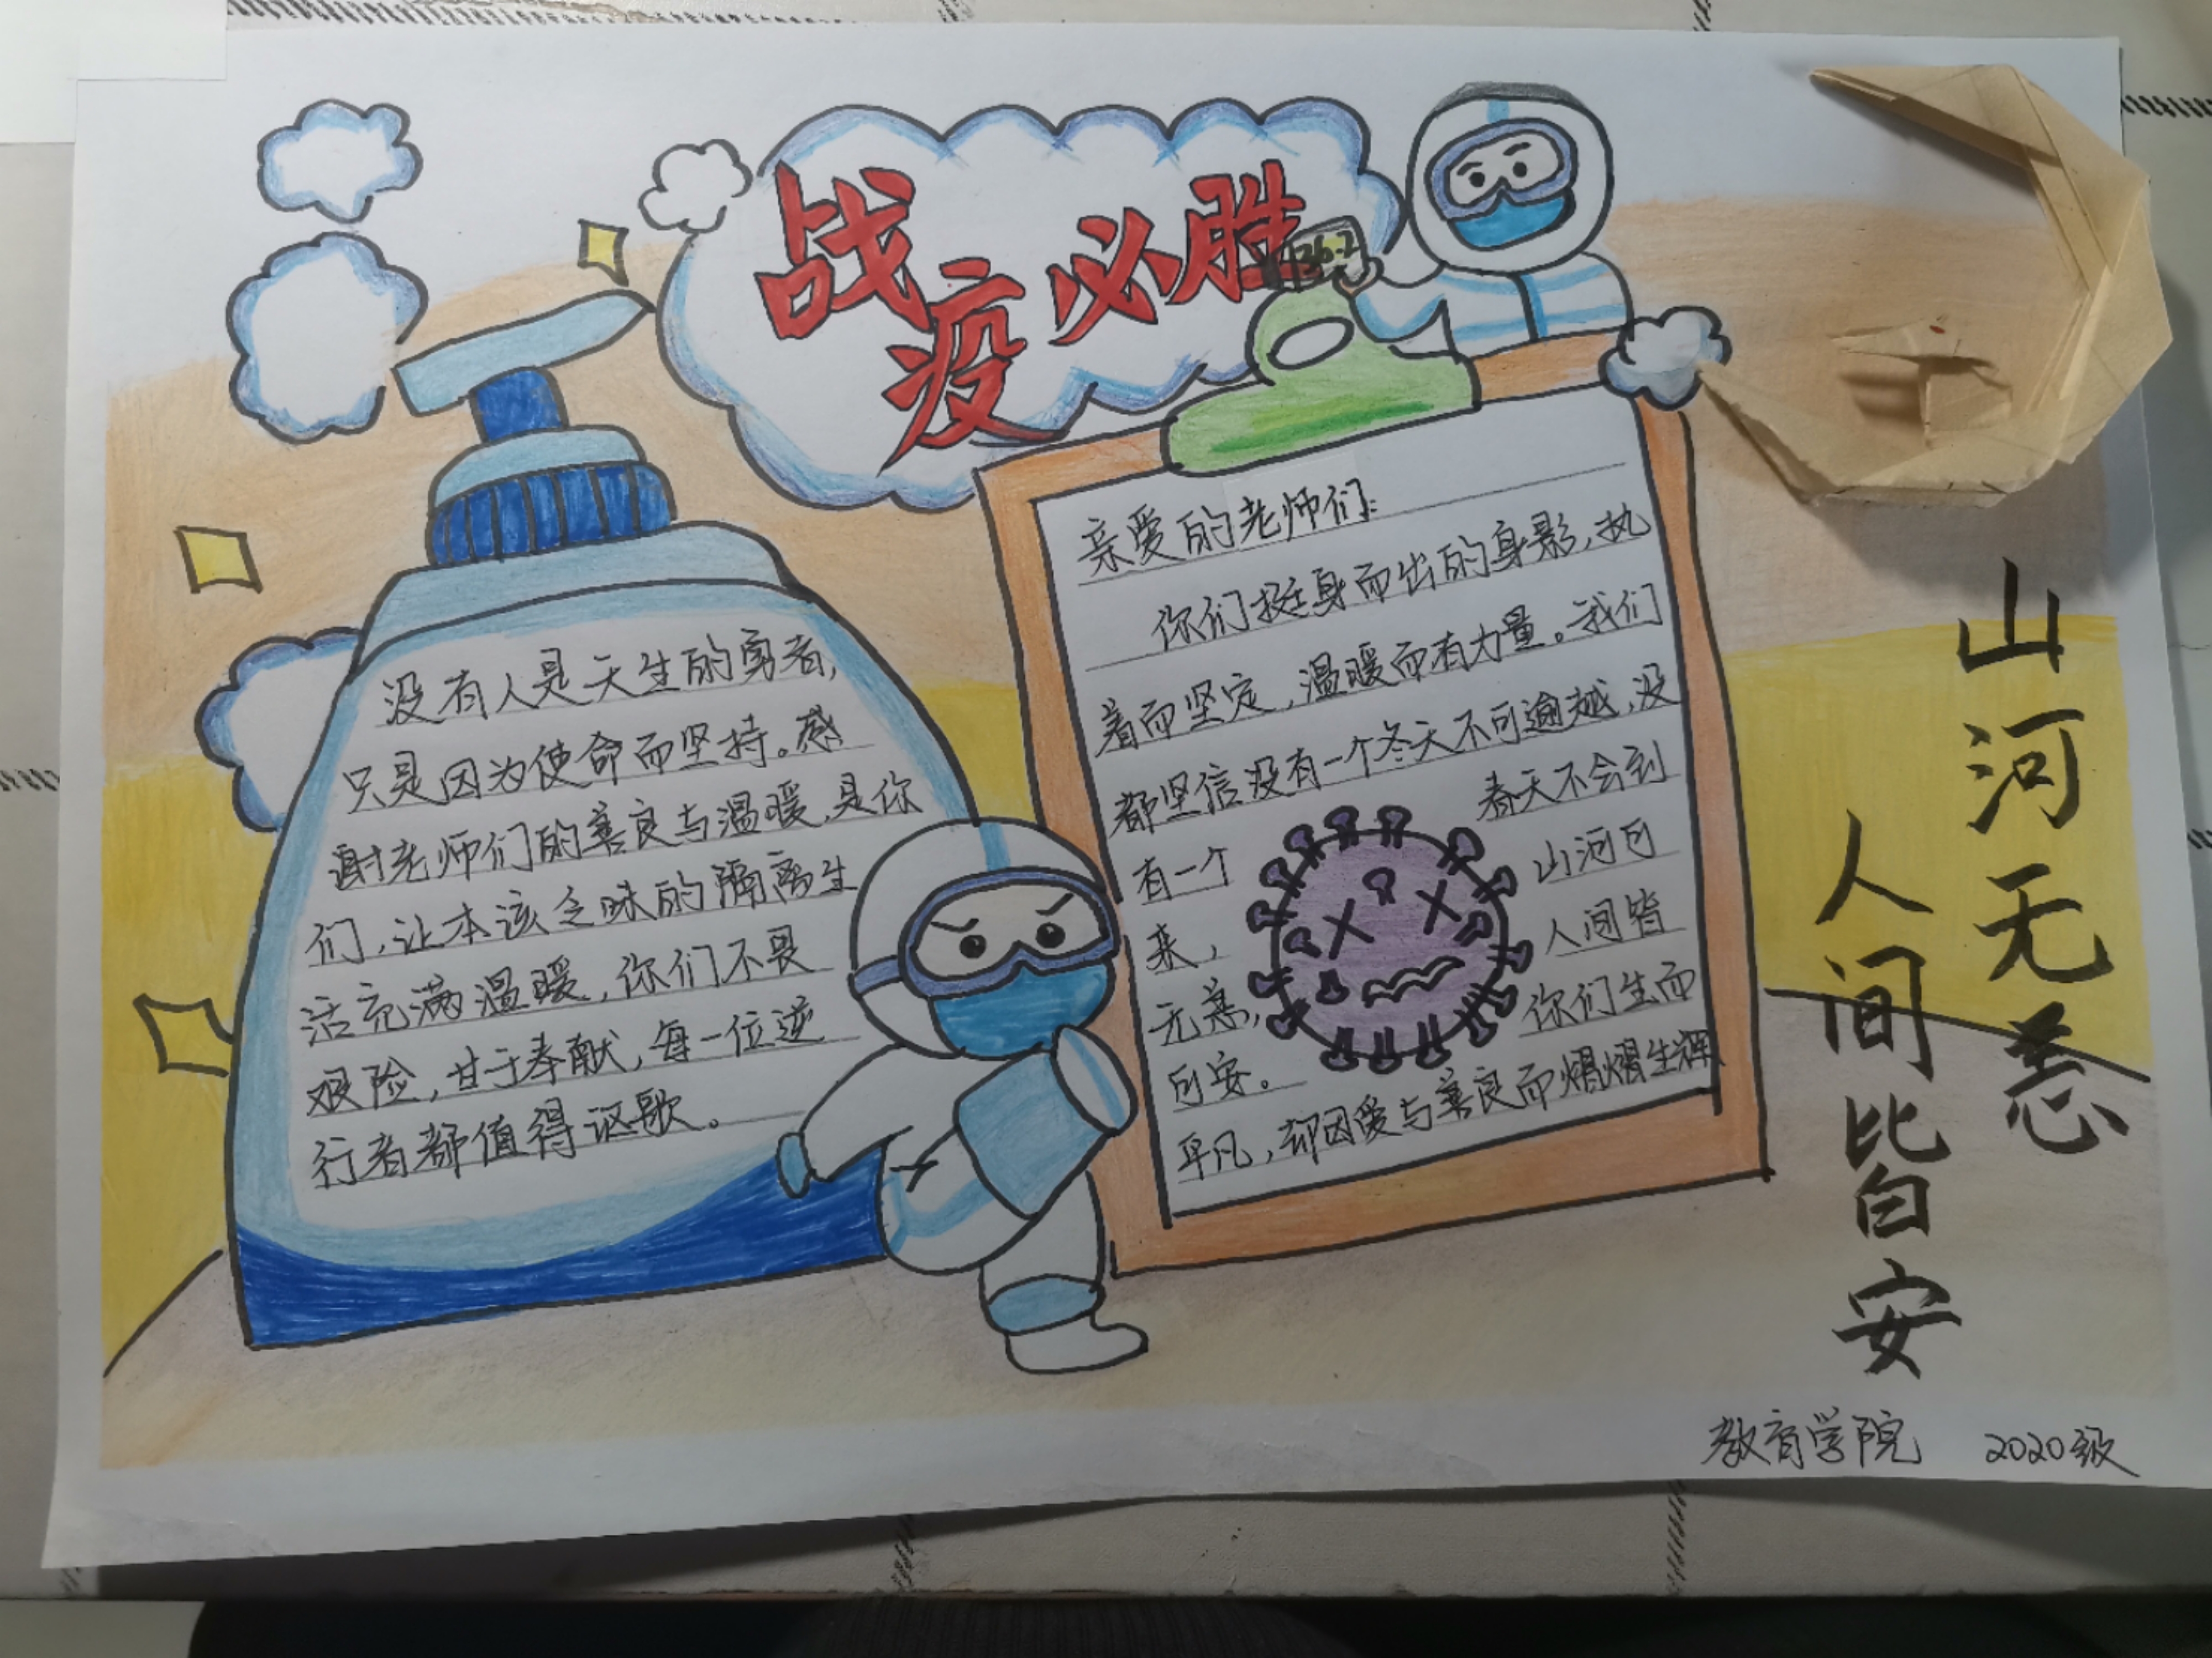 战疫必胜
36.2
没有人是天生的勇者,
只是因为使命而坚持。感
谢老师们的善良与温暖,是你
们,让本该乏味的隔离生
活充满温暖,你们不畏
艰险,甘于奉献,每一位逆
行者都值得讴歌。
亲爱的老师们:
你们挺身而出的身影,执
着而坚定,温暖而有力量。我们
都坚信没有一个冬天不可逾越,没
有一个 春天不会到
来, 山河可
无恙, 人间皆
可安。 你们生而
平凡,却因爱与善良而熠熠生辉
山河无恙
人间皆安
教育学院 2020级